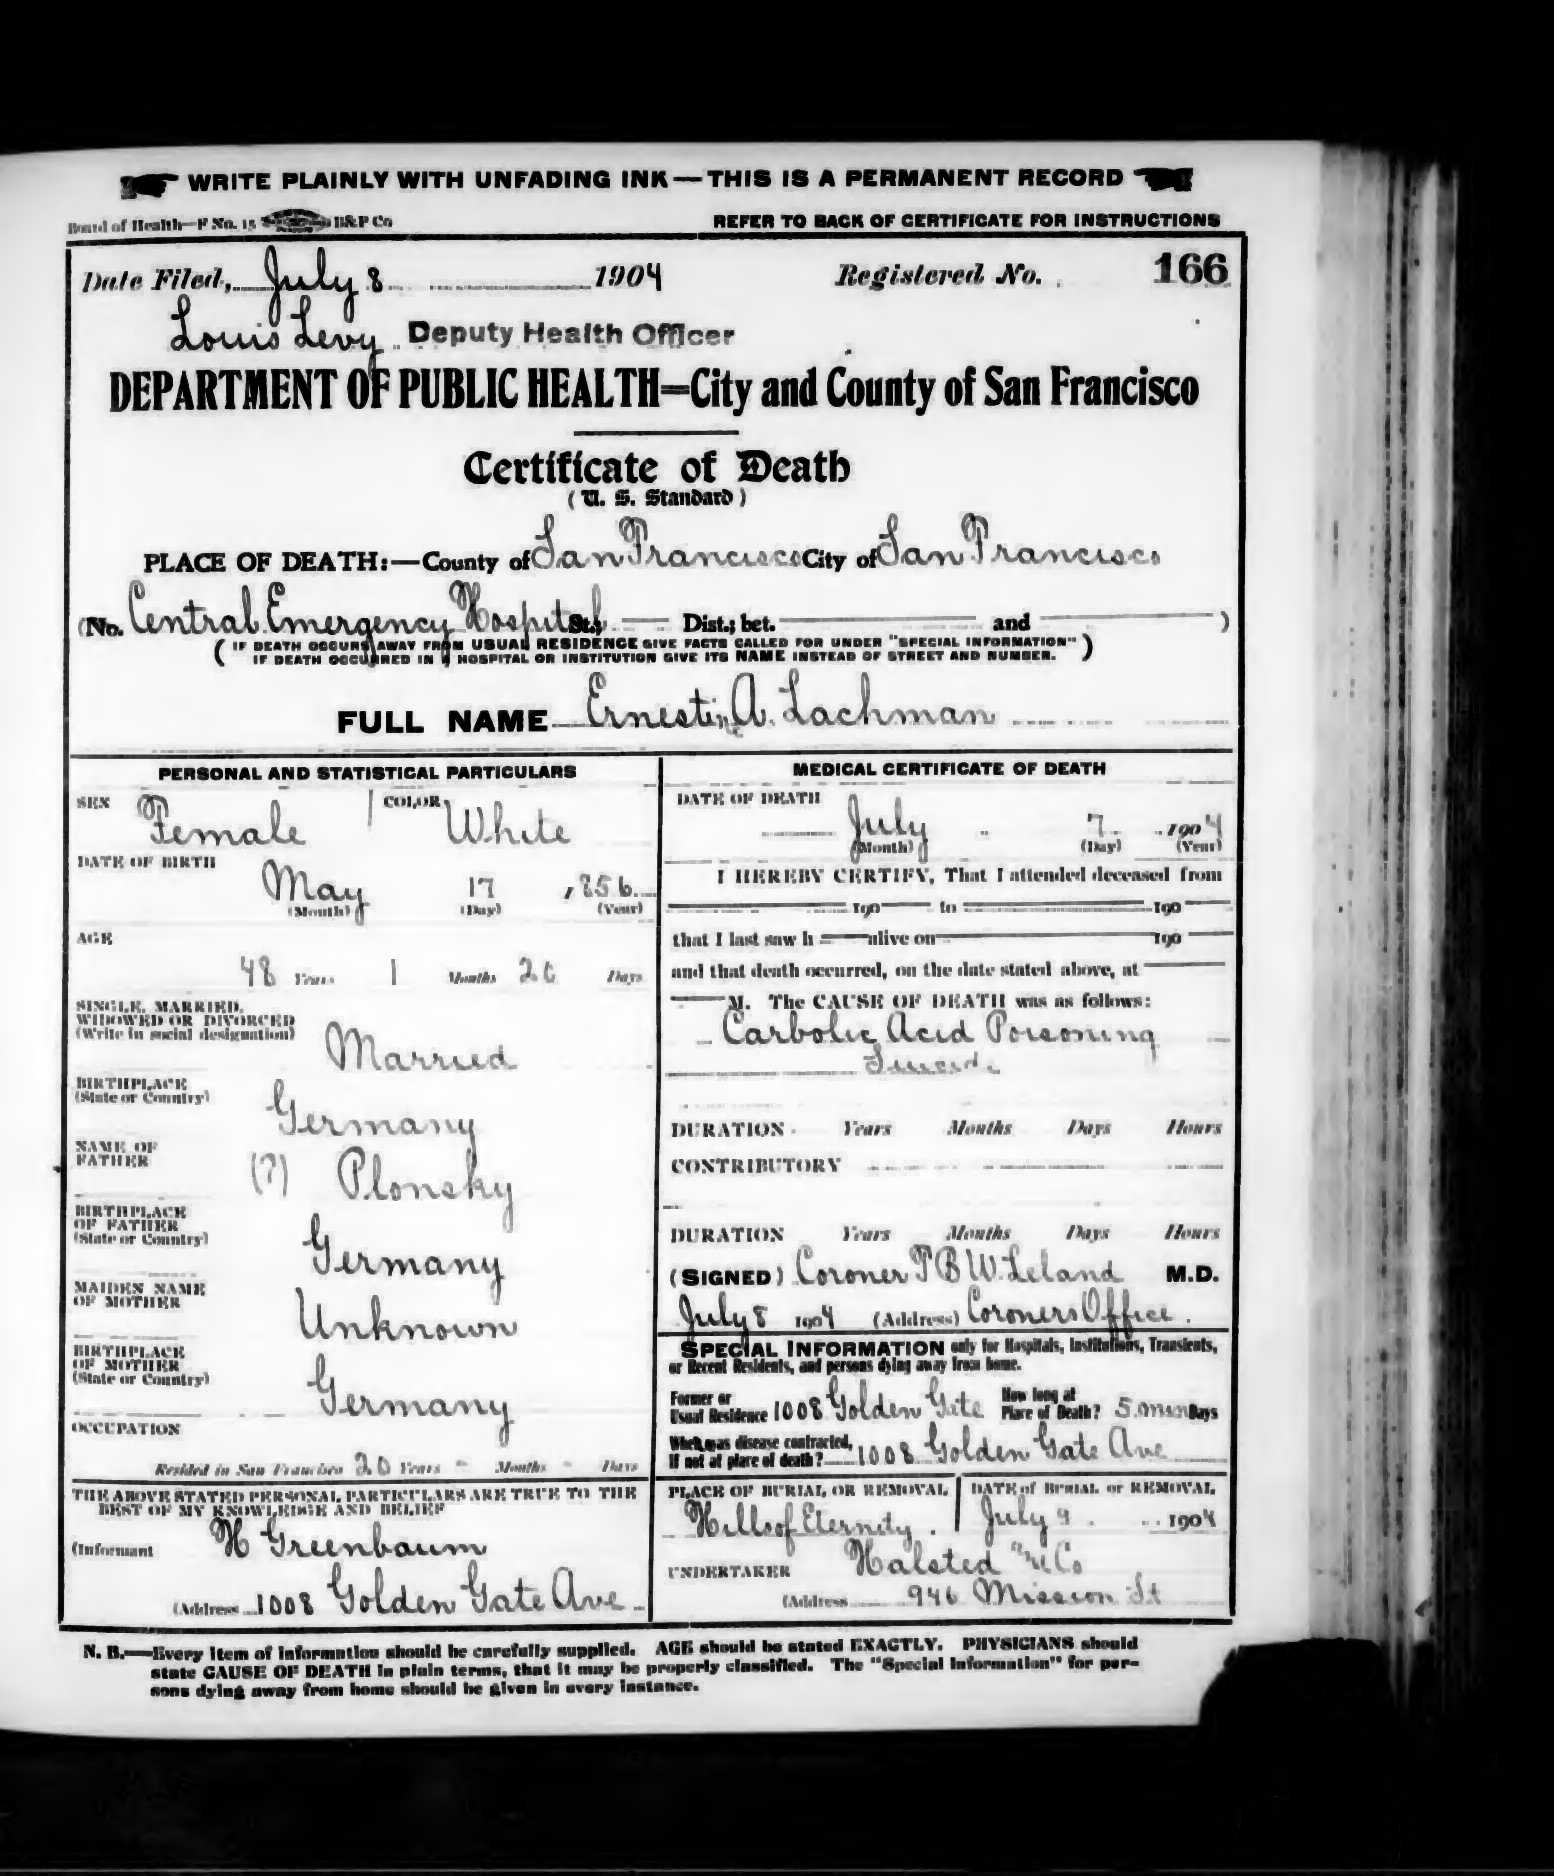 WRITE PLAINLY WITH UNFADING INK—THIS IS A PERMANENT RECORD
Board of Health—F No. 15 B&P Co REFER TO BACK OF CERTIFICATE FOR INSTRUCTIONS
Date Filed, July 8 1904 Registered No. 166
Louis Levy Deputy Health Officer
DEPARTMENT OF PUBLIC HEALTH=City and County of San Francisco
Certificate of Death
(U. S. Standard)
PLACE OF DEATH:—County of San Francisco City of San Francisco
(No. Central Emergency Hospital St.; Dist.; bet. and )
(IF DEATH OCCURS AWAY FROM USUAL RESIDENCE GIVE FACTS CALLED FOR UNDER "SPECIAL INFORMATION"
IF DEATH OCCURRED IN A HOSPITAL OR INSTITUTION GIVE ITS NAME INSTEAD OF STREET AND NUMBER.)
FULL NAME Ernestine A. Lachman
PERSONAL AND STATISTICAL PARTICULARS
SEX Female COLOR White
DATE OF BIRTH
May 17 ,856
(Month) (Day) (Year)
AGE
48 Years 1 Months 20 Days
SINGLE, MARRIED,
WIDOWED OR DIVORCED
(Write in social designation)
Married
BIRTHPLACE
(State or Country)
Germany
NAME OF
FATHER
(?) Plonsky
BIRTHPLACE
OF FATHER
(State or Country)
Germany
MAIDEN NAME
OF MOTHER
Unknown
BIRTHPLACE
OF MOTHER
(State or Country)
Germany
OCCUPATION
Resided in San Francisco 20 Years - Months - Days
THE ABOVE STATED PERSONAL PARTICULARS ARE TRUE TO THE
BEST OF MY KNOWLEDGE AND BELIEF
(Informant H Greenbaum
(Address 1008 Golden Gate Ave
MEDICAL CERTIFICATE OF DEATH
DATE OF DEATH
July 7 1904
(Month) (Day) (Year)
I HEREBY CERTIFY, That I attended deceased from
190 to 190
that I last saw h alive on 190
and that death occurred, on the date stated above, at
M. The CAUSE OF DEATH was as follows:
Carbolic Acid Poisoning
Suicide
DURATION Years Months Days Hours
CONTRIBUTORY
DURATION Years Months Days Hours
(SIGNED) Coroner T B W Leland M.D.
July 8 1904 (Address) Coroners Office
SPECIAL INFORMATION only for Hospitals, Institutions, Transients,
or Recent Residents, and persons dying away from home.
Former or
Usual Residence 1008 Golden Gate How long at
Place of Death? 5 min Days
When was disease contracted,
If not at place of death? 1008 Golden Gate Ave
PLACE OF BURIAL OR REMOVAL DATE of BURIAL or REMOVAL
Hills of Eternity July 9 1904
UNDERTAKER Halsted & Co
(Address 946 Mission St
N. B.—Every item of information should be carefully supplied. AGE should be stated EXACTLY. PHYSICIANS should
state CAUSE OF DEATH in plain terms, that it may be properly classified. The "Special Information" for per-
sons dying away from home should be given in every instance.